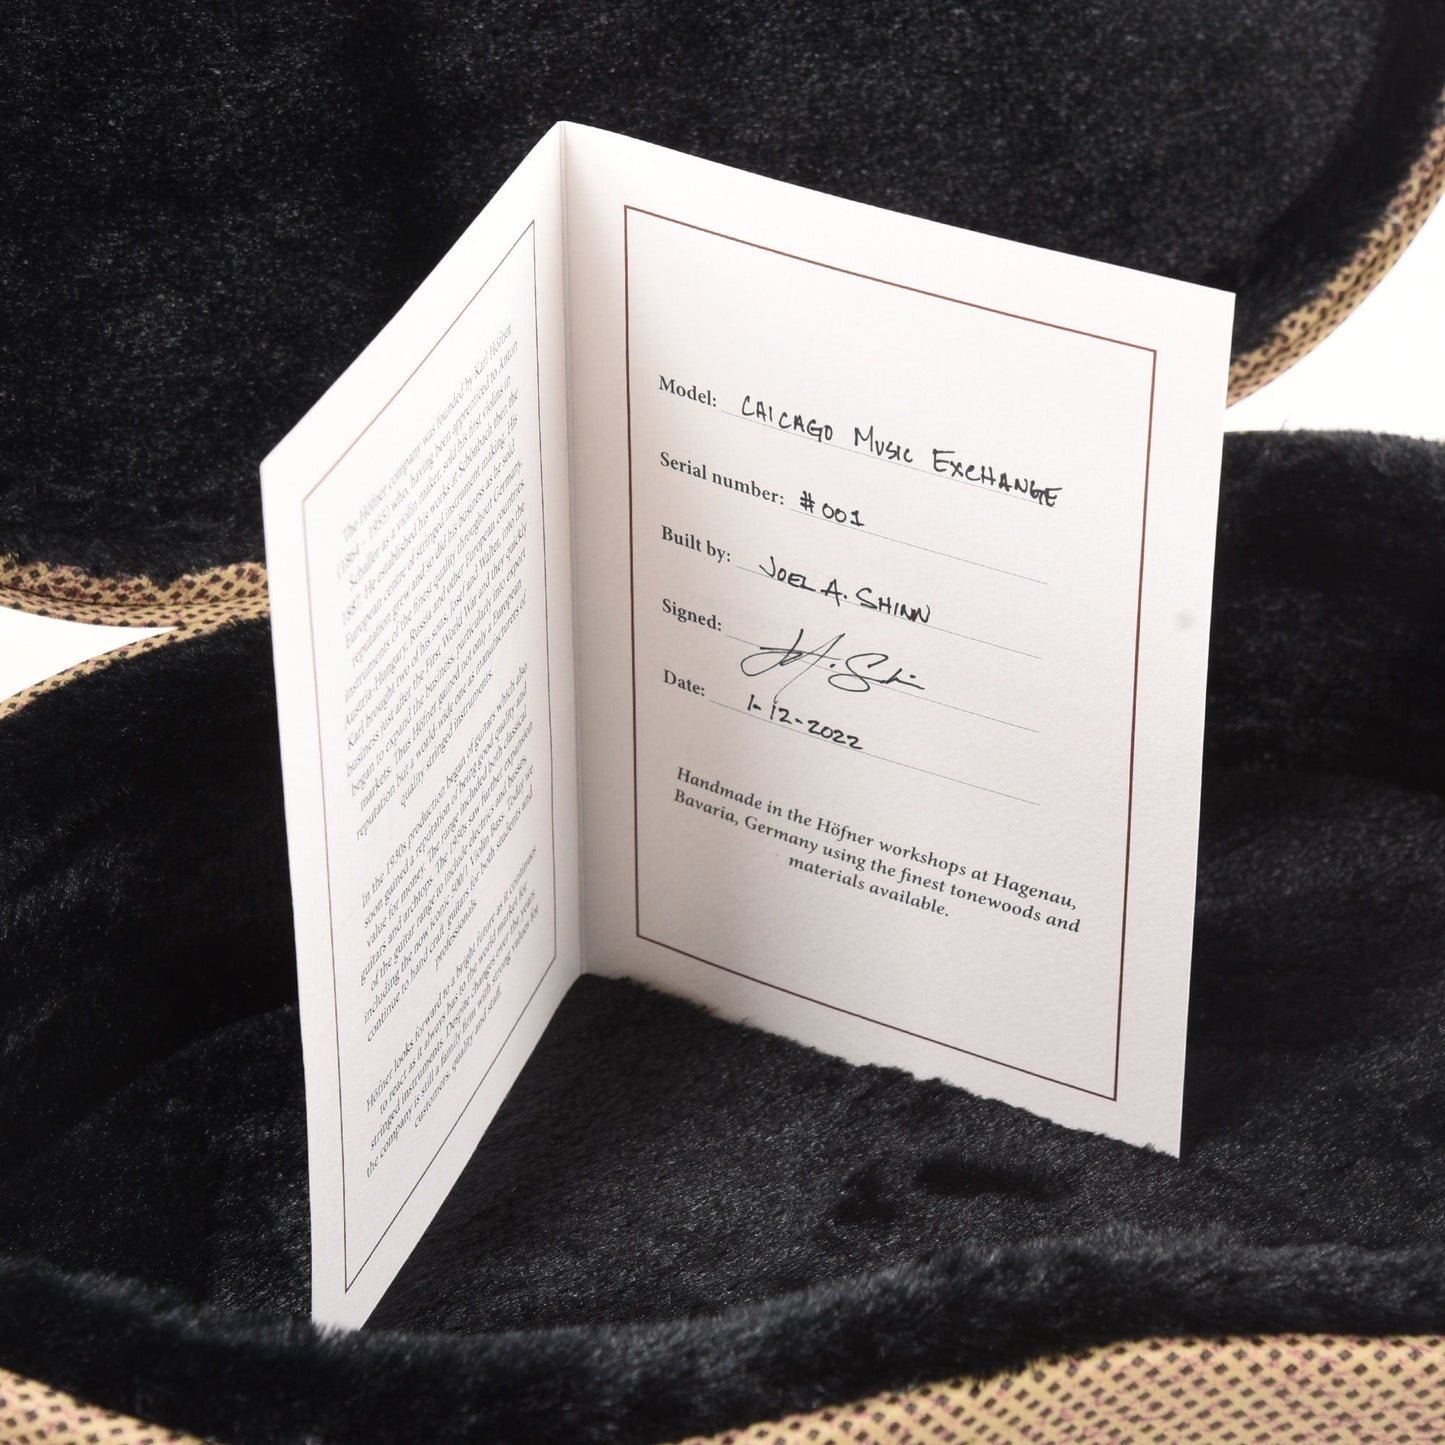 The Höfner company was founded by Karl Höfner
(1864 – 1955) who, having been apprenticed to Anton
Schaller as a violin maker, sold his first violins in
1887. He established his works at Schönbach then the
European centre of stringed instrument making. His
reputation grew and so did his business as he sold
instruments of the finest quality throughout Germany,
Austria-Hungary, Russia and other European countries.
Karl brought two of his sons, Josef and Walter, into the
business just after the First World War and they quickly
began to expand the business. Particularly into export
markets. Thus Höfner gained not only a European
reputation but a world wide one as manufacturers of
quality stringed instruments.
In the 1930s production began of guitars which also
soon gained a reputation of being good quality and
value for money. The range included both classical
guitars and archtops. The 1950s saw further expansion
of the guitar range to include electrics and basses,
including the now iconic "500/1 Violin Bass. Today we
continue to hand craft guitars for both students and
professionals.
Höfner looks forward to a bright future as it continues
to react as it always has to the world market for
stringed instruments. Despite changes over the years
the company is still a family firm with strong values for
customers, quality and staff.
Model: CAICAGO MUSIC EXCHANGE
Serial number: #001
Built by: JOEL A. SHINN
Signed:
Date: 1-12-2022
Handmade in the Höfner workshops at Hagenau,
Bavaria, Germany using the finest tonewoods and
materials available.